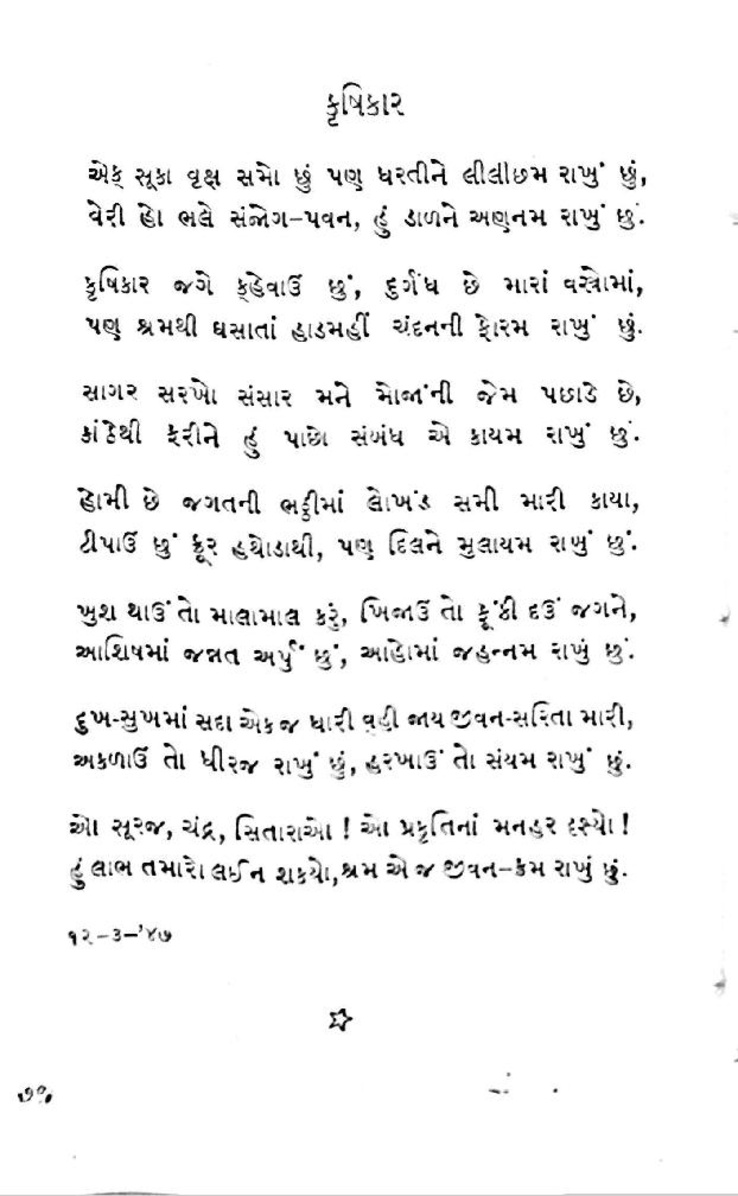 કૃષિકાર
એક્ સૂકા વૃક્ષ સમો છું પણ ધરતીને લીલીછમ રાખું છું,
વેરી હો ભલે સંજોગ-પવન, હું ડાળને અણનમ રાખું છું.
કૃષિકાર જગે ક્હેવાઉં છું, દુર્ગંધ છે મારાં વસ્ત્રોમાં,
પણ શ્રમથી ઘસાતાં હાડમહીં ચંદનની ફોરમ રાખું છું.
સાગર સરખો સંસાર મને મોજાંની જેમ પછાડે છે,
કાંઠેથી ફરીને હું પાછો સંબંધ એ કાયમ રાખું છું.
હોમી છે જગતની ભઠ્ઠીમાં લોખંડ સમી મારી કાયા,
ટીપાઉં છું ક્રૂર હથોડાથી, પણ દિલને મુલાયમ રાખું છું.
ખુશ થાઉં તો માલામાલ કરું, ખિજાઉં તો ફૂંકી દઉં જગને,
આશિષમાં જન્નત અર્પું છું, આહોમાં જહન્નમ રાખું છું.
દુખ-સુખમાં સદા એકજ ધારી વહી જાય જીવન-સરિતા મારી,
અકળાઉં તો ધીરજ રાખું છું, હરખાઉં તો સંયમ રાખું છું.
ઓ સૂરજ, ચંદ્ર, સિતારાઓ ! ઓ પ્રકૃતિનાં મનહર દૃશ્યો !
હું લાભ તમારો લઈ ન શક્યો, શ્રમ એ જ જીવન-ક્રમ રાખું છું.
૧૨-૩-'૪૭